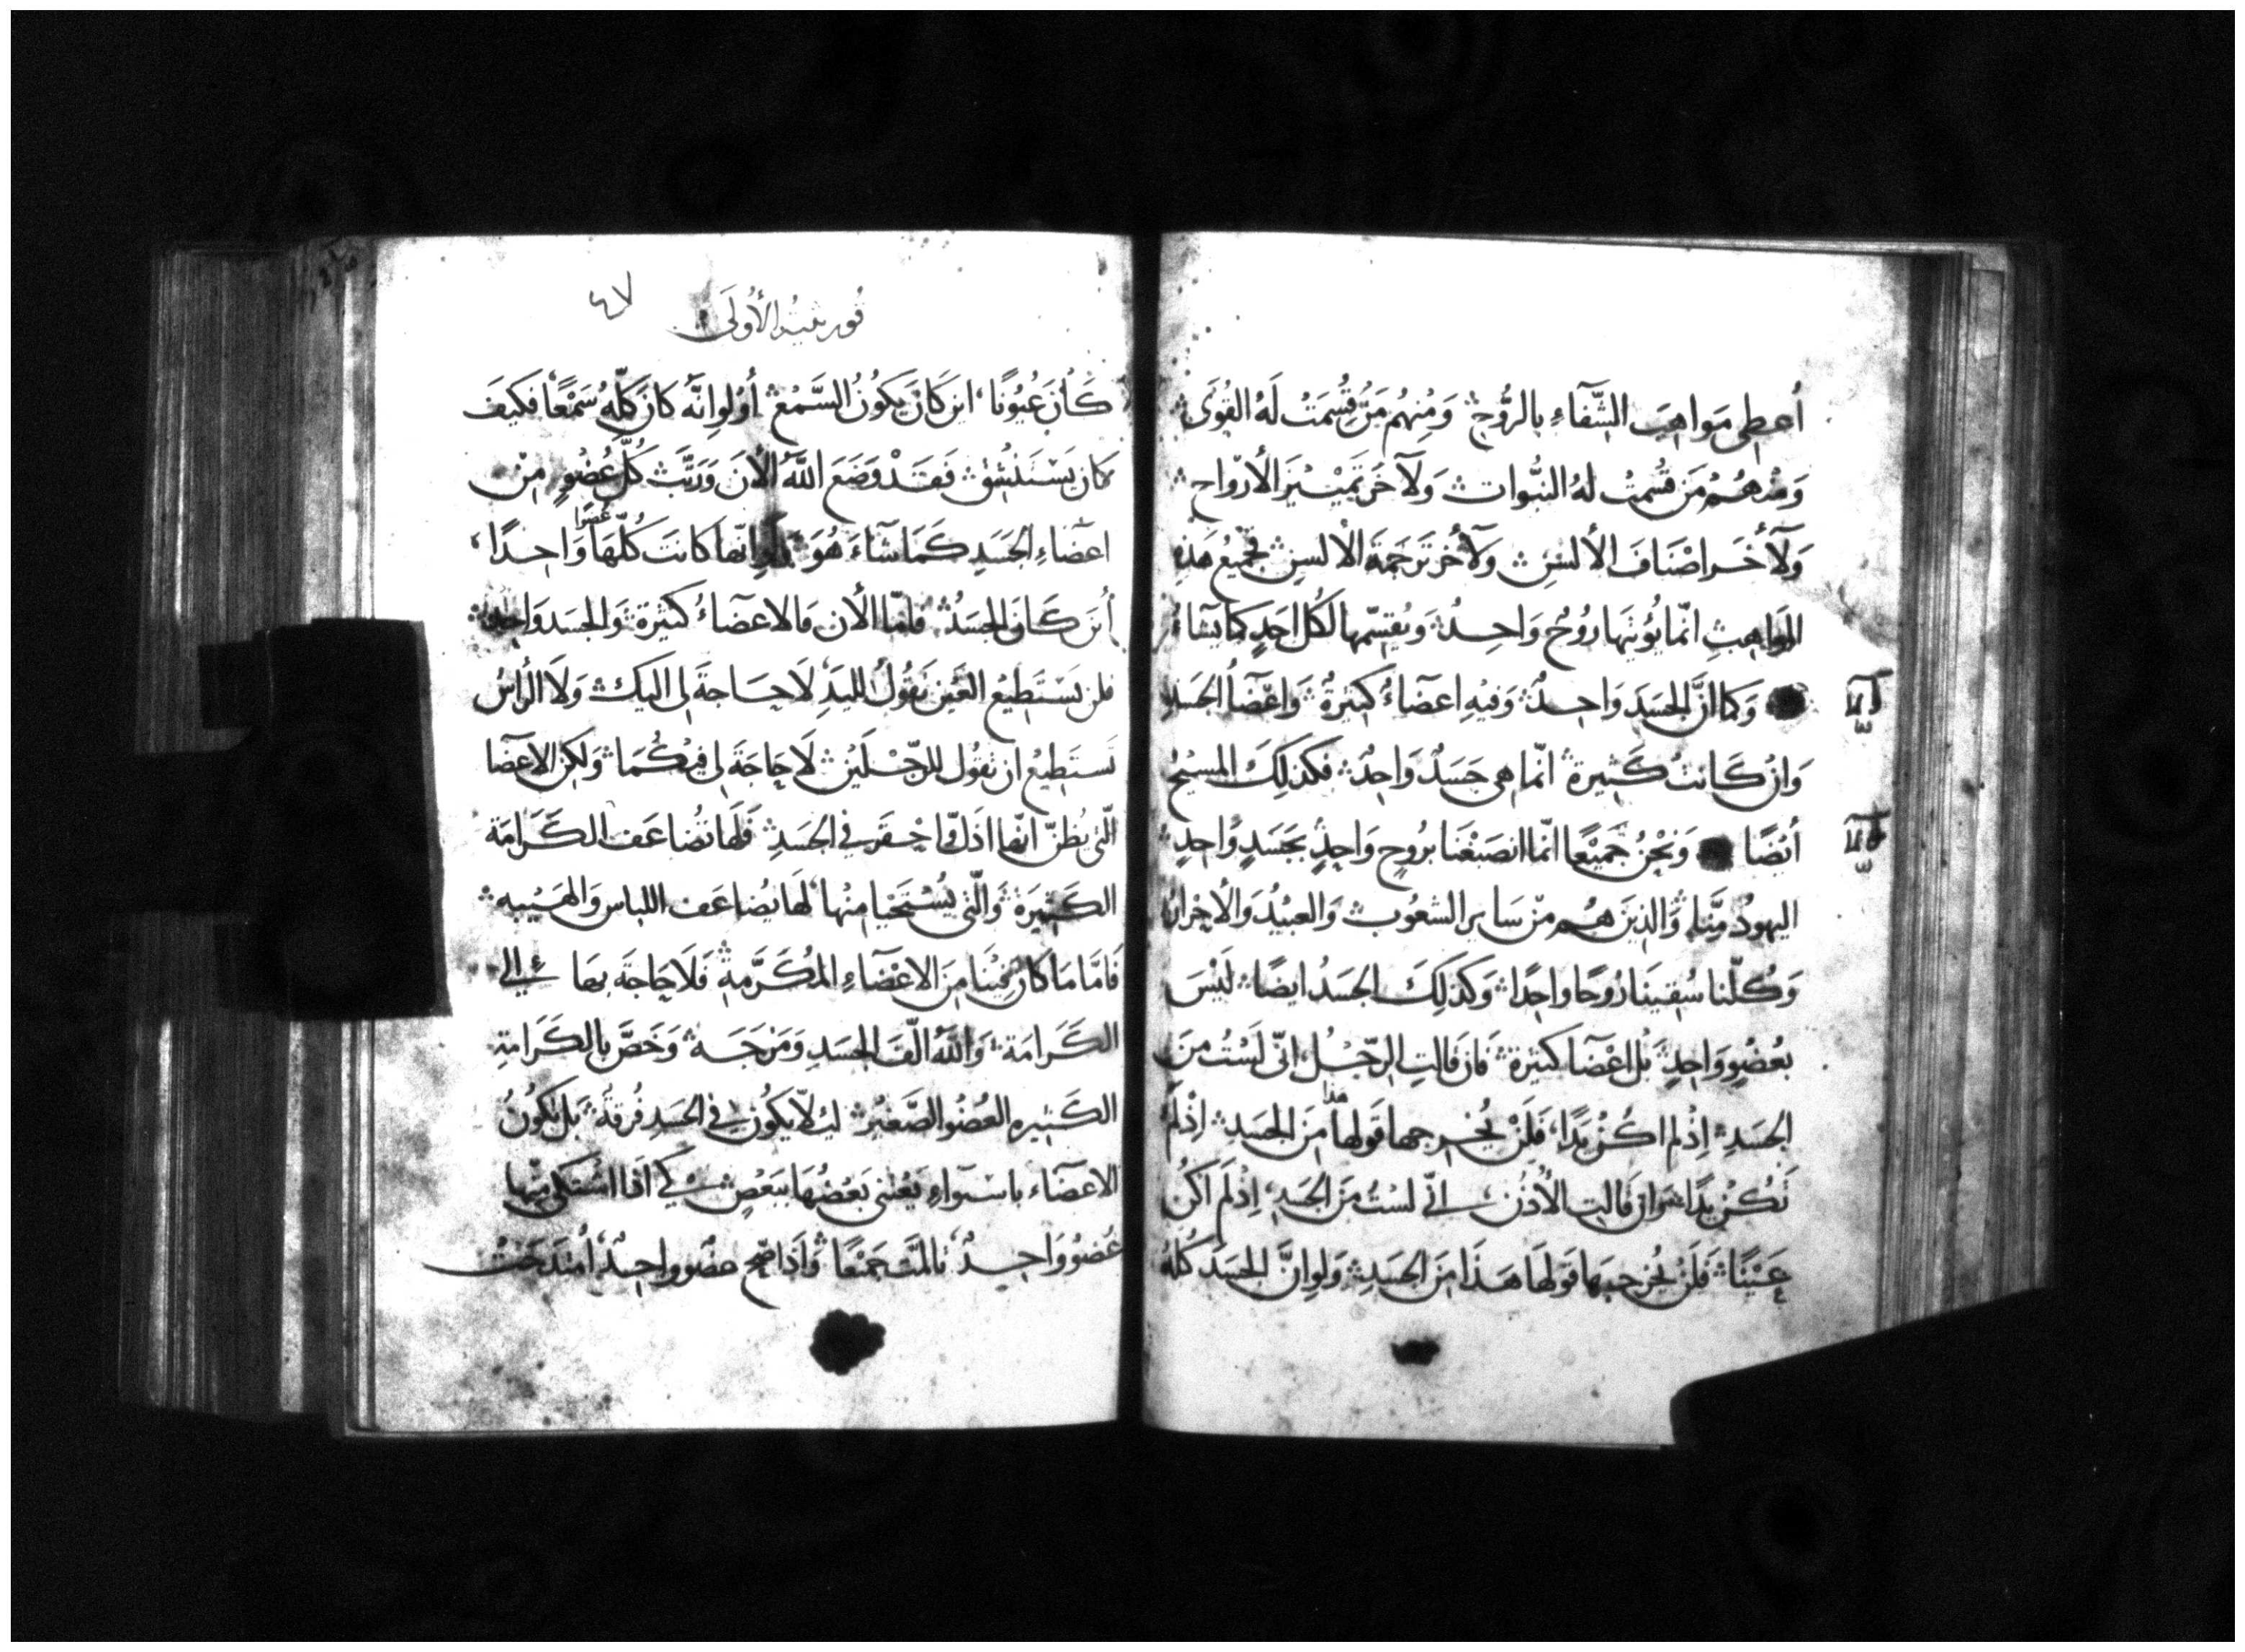 أُعطِى مَواهِبَ الشِّفَآءِ بالرُّوحِ وَمِنهُم مَنْ قُسِمَتْ لَهُ القُوَى
وَمنهُمْ مَن قُسِمتْ لهُ النبُّوات وَلآخَر تَمْيْيزَ الأرْوَاح
وَلآخَر اصْنَافَ الألسُنِ وَلآخَر تَرجَمَةَ الألسنِ فجمِيْعُ هَذِهِ
المَوَاهِبِ انّما يُؤتيَهَا رُوْحٌ وَاحِدٌ وَيُقَسِّمهَا لكُل احَدٍ كمَا يَشَآءُ
وَكما انَّ الجسَدَ وَاحِدٌ وَفيْهِ اعضَآءُ كثيرةٌ وَاعْضَآ الجسَدِ
وَانْ كَانتْ كَثِيرةً انّما هي جَسَدٌ وَاحِدٌ فكذلِكَ المسِيْحُ
أيْضًا وَنحْنُ جَمِيْعًا انّما انصَبَغْنَا برُوحٍ وَاحِدٍ بجَسَدٍ وَاحِدٍ
اليهودُ مِنَّا وَالذِينَ هُم مِن سَايرِ الشعُوب وَالعبِيْدُ وَالأحرارُ
وَكُلّنا سُقِينَا رُوحًا وَاحِدًا وَكذلِكَ الجسَدُ ايضًا لَيْسَ
بعُضْوٍ وَاحِدٍ بَل اعْضَآ كثيرة فَان قَالتِ الرِجْل انّى لَسْتُ مِنَ
الجسَدِ اِذْ لم اكُنْ يَدًا فَلَنْ يُخرِجهَا قَولها هذا مِنَ الجسَدِ اِذْ لَم
تَكُنْ يَدًا وَان قَالتِ الأُذُن انّى لسْتُ مِنَ الجسَدِ اِذْ لَم اكُن
عَيْنًا فَلَنْ يُخرجهَا قَولهَا هَذَا مِنَ الجسَدِ وَلوانَّ الجسَدَ كُلّهُ
قورنثيُه الأُولَى ٤٧
كَانَ عُيُونًا اين كَانَ يَكُونُ السَّمْع أوْ لوانّهُ كانَ كلّه سَمْعًا فَكَيفَ
كان يَسْتَنْشِق فَقَدْ وَضَعَ اللهُ الأنَ وَرَتَّبَ كُلّ عُضْوٍ مِنْ
اعضَاءِ الجَسَدِ كَمَا شَآءَ هُوَ وَلو انّها كَانَتْ كُلّهَا عضوا وَاحِدًا
أينَ كَانَ الجسَدُ فامّا الأن فَالاعضَآءُ كثيْرة وَالجسَد وَاحِدٌ
فلن يَسْتَطِيْعُ العَيْن تَقُولُ لليَدِ لَا حَاجةَ لِى اليكِ وَلَا الرَاسُ
تَستَطِيعُ ان تقُول للرّجْلَيْن لَا حَاجَةَ لِى فيْكُمَا وَلكِن الاعضَا
الّتى يُظنّ انّها اذَل وَاحقَر في الجسَدِ فَلَها تضَاعَف الكَرَامَة
الكَثِيرَة وَالّتى يُسْتَحْيَا مِنْهَا لهَا يُضَاعَف اللبَاس وَالهَيْبه
فَامّا مَا كانَ فيْنَا مِنَ الاعْضَآءِ المُكَرَّمةِ فَلَا حَاجَةَ بهَا الى
الكَرَامَة وَاللهُ الّفَ الجسَدِ وَمَزَجَهُ وَخَصَّ بالكَرَامةِ
الكَثِيرهِ العُضْو الصَّغيْر ليلّا يكُون في الجسَدِ فُرقة بَل تكُونُ
الاعضَآء باسْتواءٍ يَعْتنى بَعْضُهَا ببَعْضٍ كى اذَا اشتكى مِنْها
عُضوٌ وَاحِدٌ تالمَتْ جَمِيْعًا وَاذَا مُدِحَ عضو وَاحِدٌ امْتَدَحَتْ